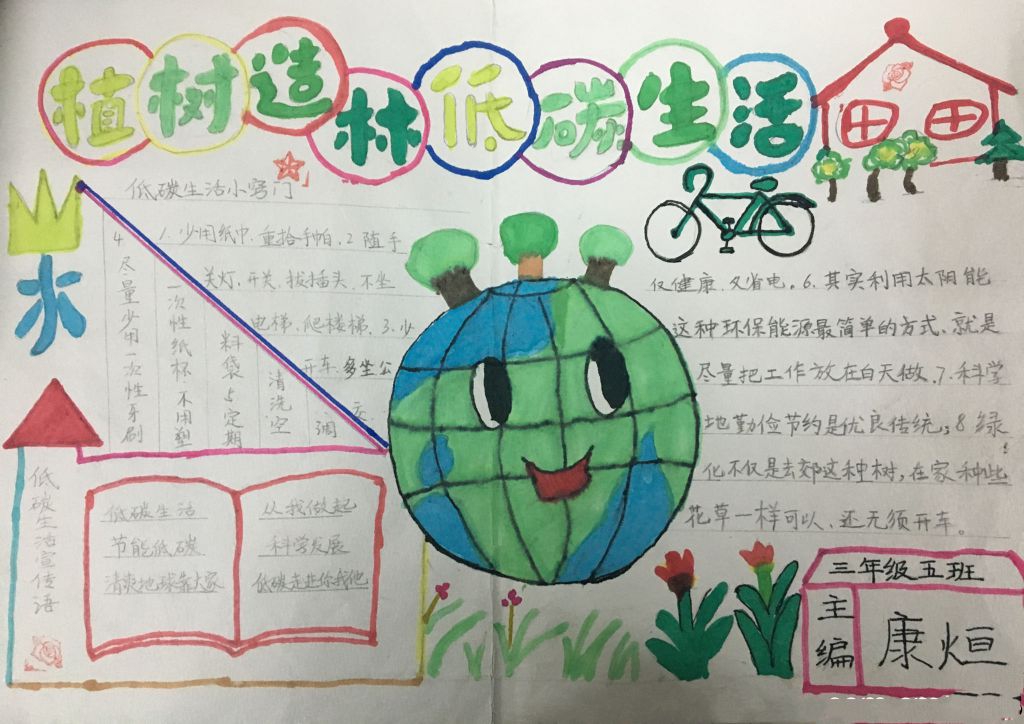 植树造林低碳生活
水
低碳生活小窍门
1.少用纸巾,重拾手帕,2 随手
关灯、开关、拔插头、不坐
电梯、爬楼梯,3.少
开车,多坐公
交
4
尽量少用一次性牙刷
一次性纸杯,不用塑
料袋 5 定期
清洗空
调
仅健康、又省电。6、其实利用太阳能
这种环保能源最简单的方式、就是
尽量把工作放在白天做、7、科学
地勤俭节约是优良传统;8 绿
化不仅是去郊这种树,在家种些
花草一样可以、还无须开车。
低碳生活宣传语
低碳生活
节能低碳
清爽地球靠大家
从我做起
科学发展
低碳走进你我他
三年级五班
主编
康烜